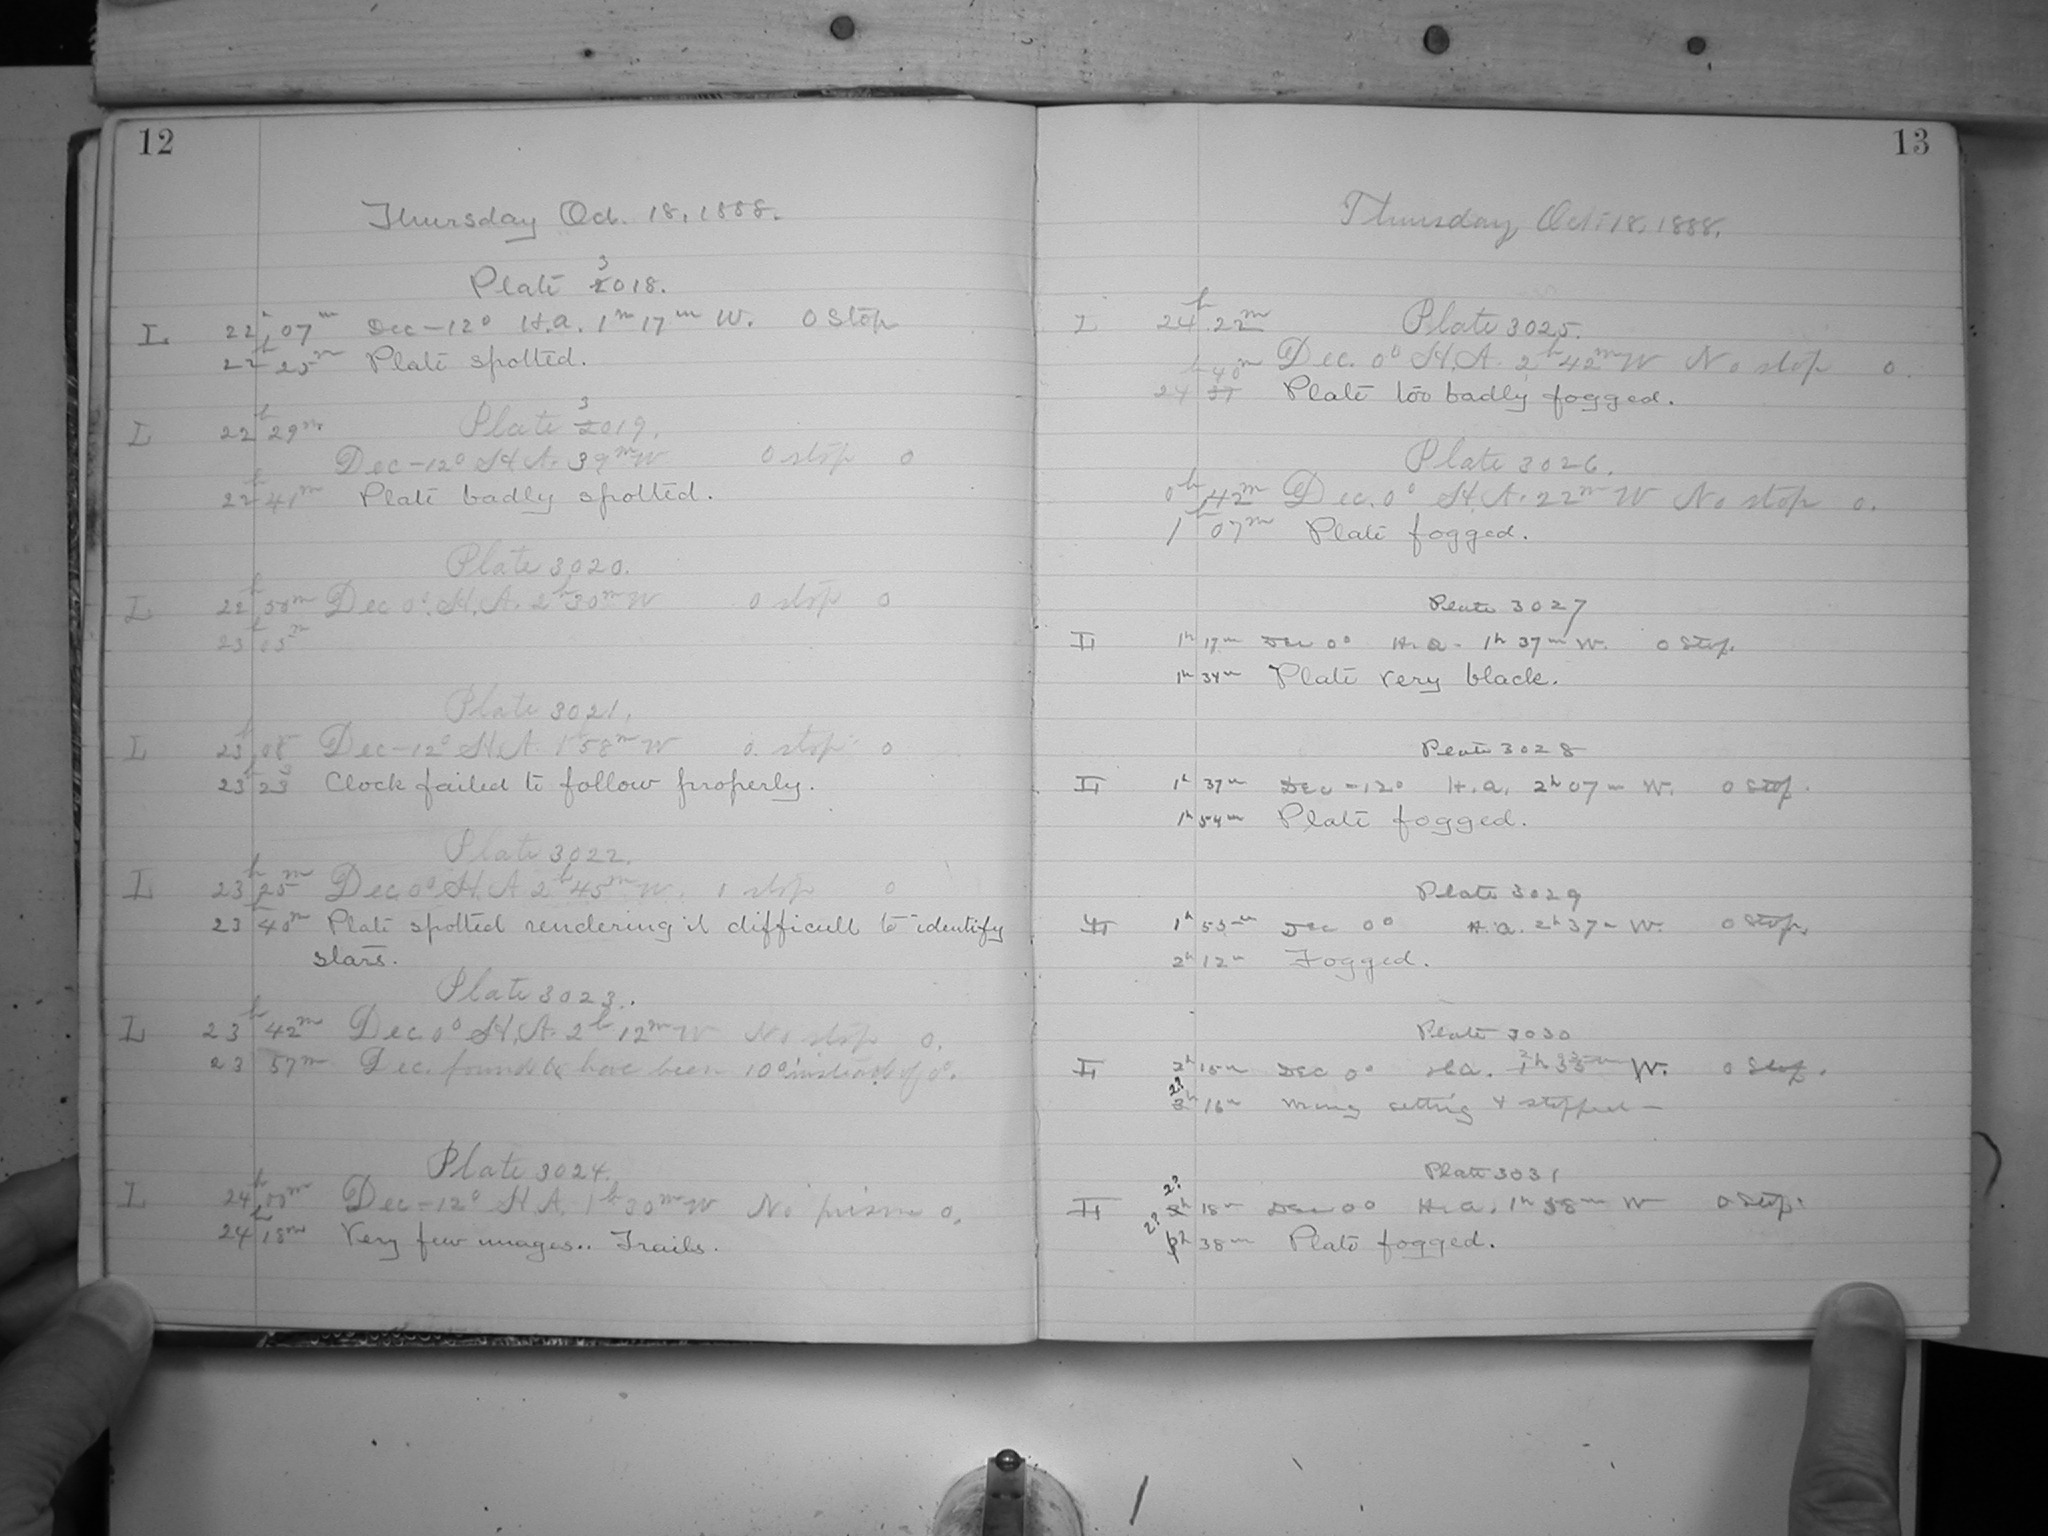 12
Thursday Oct. 18, 1888.
3
Plate 2018.
I 22h 07m Dec -12° H.A. 1m 17m W. 0 Stop
22h 25m Plate spotted.
3
I 22h 29m Plate 2019.
Dec -12° H.A. 39m W 0 stop 0
22h 41m Plate badly spotted.
Plate 3020.
I 22h 50m Dec 0° H.A. 2h 30m W 0 stop 0
23h 05m
Plate 3021.
I 23h 08 Dec -12° H.A. 1h 58m W 0 stop 0
23h 23 Clock failed to follow properly.
Plate 3022.
I 23h 25m Dec 0° H.A. 2h 45m W. 1 stop 0
23h 40m Plate spotted rendering it difficult to identify
stars.
Plate 3023.
I 23h 42m Dec 0° H.A. 2h 12m W No stop 0.
23 57m Dec. found to have been 10° instead of 0°.
Plate 3024.
I 24h 00m Dec -12° H.A. 1h 30m W No prism 0.
24h 18m Very few images.. Trails.
13
Thursday Oct. 18, 1888.
Plate 3025.
I 24h 22m
Dec. 0° H.A. 2h 42m W No stop 0.
40m
24h 37 Plate too badly fogged.
Plate 3026.
0h 42m Dec. 0° H.A. 22m W No stop 0.
1h 07m Plate fogged.
Plate 3027
II 1h 17m Dec 0° H.A. 1h 37m W. 0 Stop.
1h 34m Plate very black.
Plate 3028
II 1h 37m Dec -12° H.A. 2h 07m W. 0 Stop.
1h 54m Plate fogged.
Plate 3029
II 1h 55m Dec 0° H.A. 2h 37m W. 0 Stop.
2h 12m Fogged.
Plate 3030
II 2h 15m Dec 0° H.A. 1h 33m W. 0 Stop.
2?
3h 16m Wrong setting & stopped —
Plate 3031
2?
II h 18m Dec 0° H.A. 1h 38m W 0 Stop.
2?
h 38m Plate fogged.